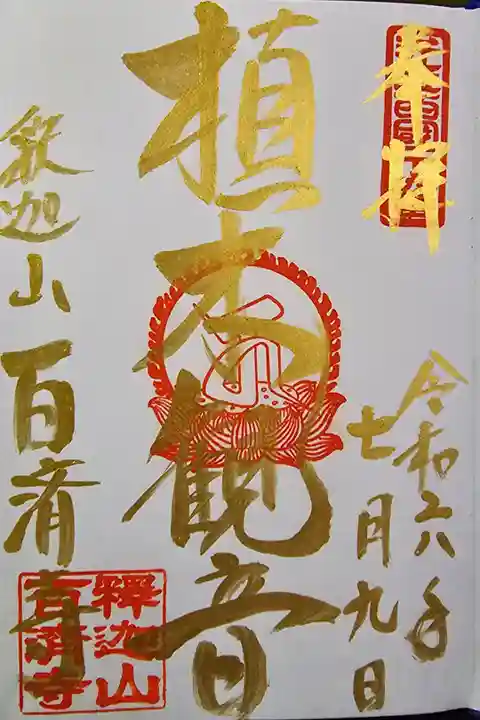 奉拝
令和六年
七月九日
植木観音
釈迦山百済寺
釋迦山
百濟寺